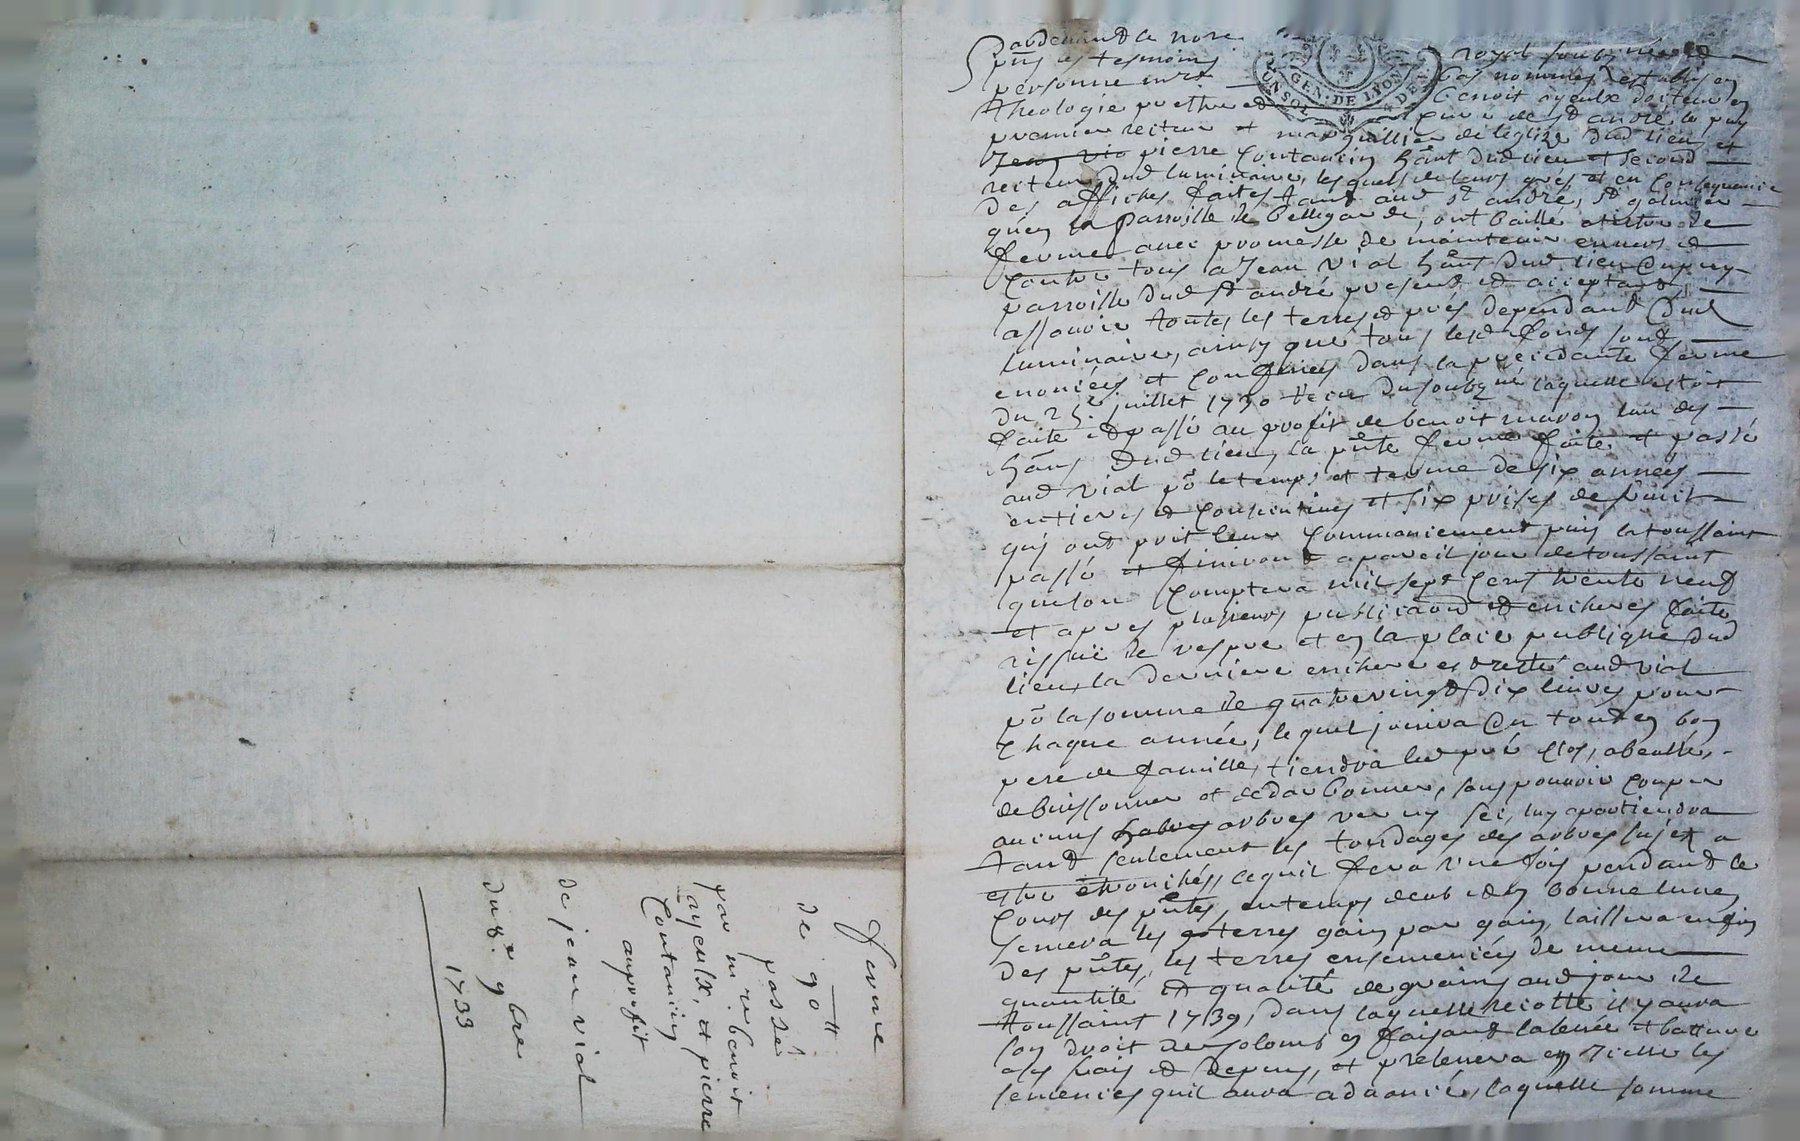 Pardevant le no.re royal soubz.né et
puis les tesmoins bas nommés, establys en
personne m.re Benoit ayeulx docteur en
theologie prethre et curé de st andré le puy
premier recteur et marguillier de leglize dud lieu, et
pierre Contancin hant dud lieu et second
recteur dud luminaire, lesquels de leurs grés et en consequance
des affiches faites tant aud st andré, st galmier
quen la parroisse de bellegarde, ont baillé a titre de
ferme avec promesse de maintenir envers et
contre tous a Jean vial hant dud lieu du puy
parroisse dud st andré present et acceptant,
assavoir toutes les terres et prés dependant dud
luminaire, ainsy que tous lesd fonds sont
enoncées et confinées dans la precedante ferme
du juillet 1730 receue du soubzné laquelle estoit
faite et passé au profit de benoit mavon lun des
hans dud lieu, la pnte ferme faite et passé
aud vial po le temps et terme de six années
entieres et consecutives et six prises de fruit
qui ont prit leur commanciement puis la toussaint
passé et finiront a pareil jour de toussaint
que lon comptera mil sept cent trente neuf
et apres plusieurs publicaons et encheres faite
rissuë de vespre et en la place publique dud
lieu, la derniere enchere est resté aud vial
po la somme de quatre vingt dix livres pour
chaque année, le quel jouira du tout en bon
pere de famille, tiendra les pré clos, abeallé,
debuissonner et dedarbonner, sans pouvoir couper
aucuns arbres verts ny sec, luy apartiendra
tant seulement les tondages des arbres sujet a
estre etronchés, ce quil fera une fois pendant le
cours des pntes, en temps deub et en bonne lune,
semera les terres gain par gain, laissera en fin
des pntes, les terres ensemencées de meme
quantité et qualité de grains aud jour de
toussaint 1739, dans laquelle recolte il y aura
son droit de colons en faisant la levée et batture
a ses frais et depens, et prelevera en icelle les
semences quil aura advancé, laquelle somme
ferme
de 90 ll
passé
par m.re benoit
ayeulx, et pierre
Contancin
au profit
de jean vial
du 8.e 9bre
1733